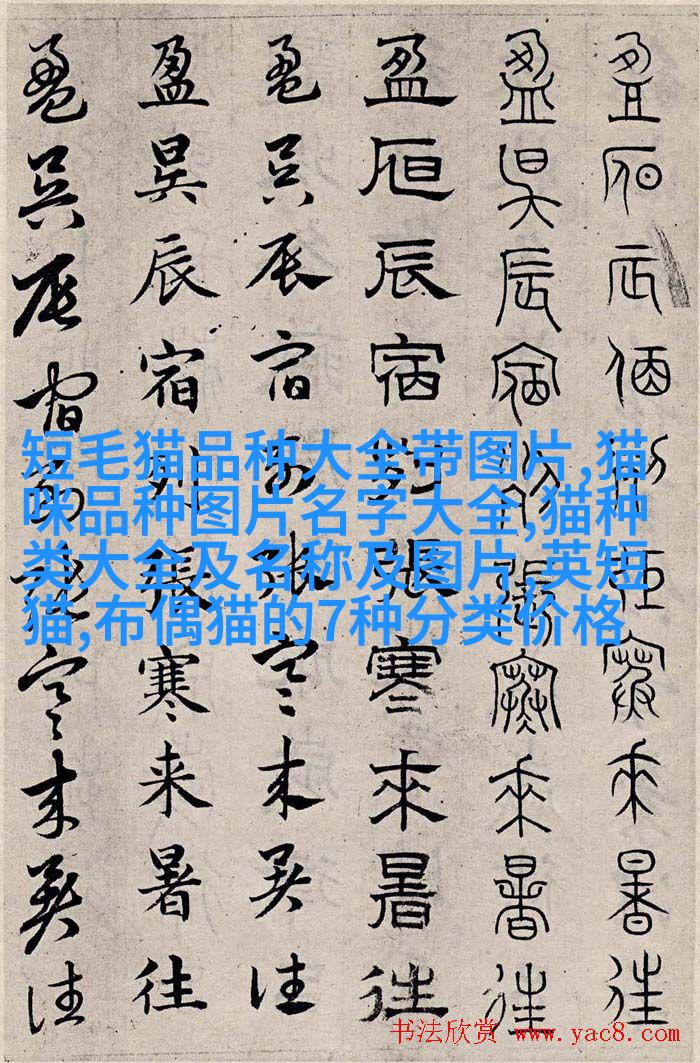 盈昃辰宿列張寒來暑往
盈昃辰宿列張寒來暑往
盈昃辰宿列張寒來暑往
盈昃辰宿列張寒来暑往
盈昃辰宿列張寒来暑往
盈昃辰宿列張寒来暑往
短毛猫品种大全带图片,猫
咪品种图片名字大全,猫种
类大全及名称及图片,英短
猫,布偶猫的7种分类价格
书法欣赏 www.yac8.com